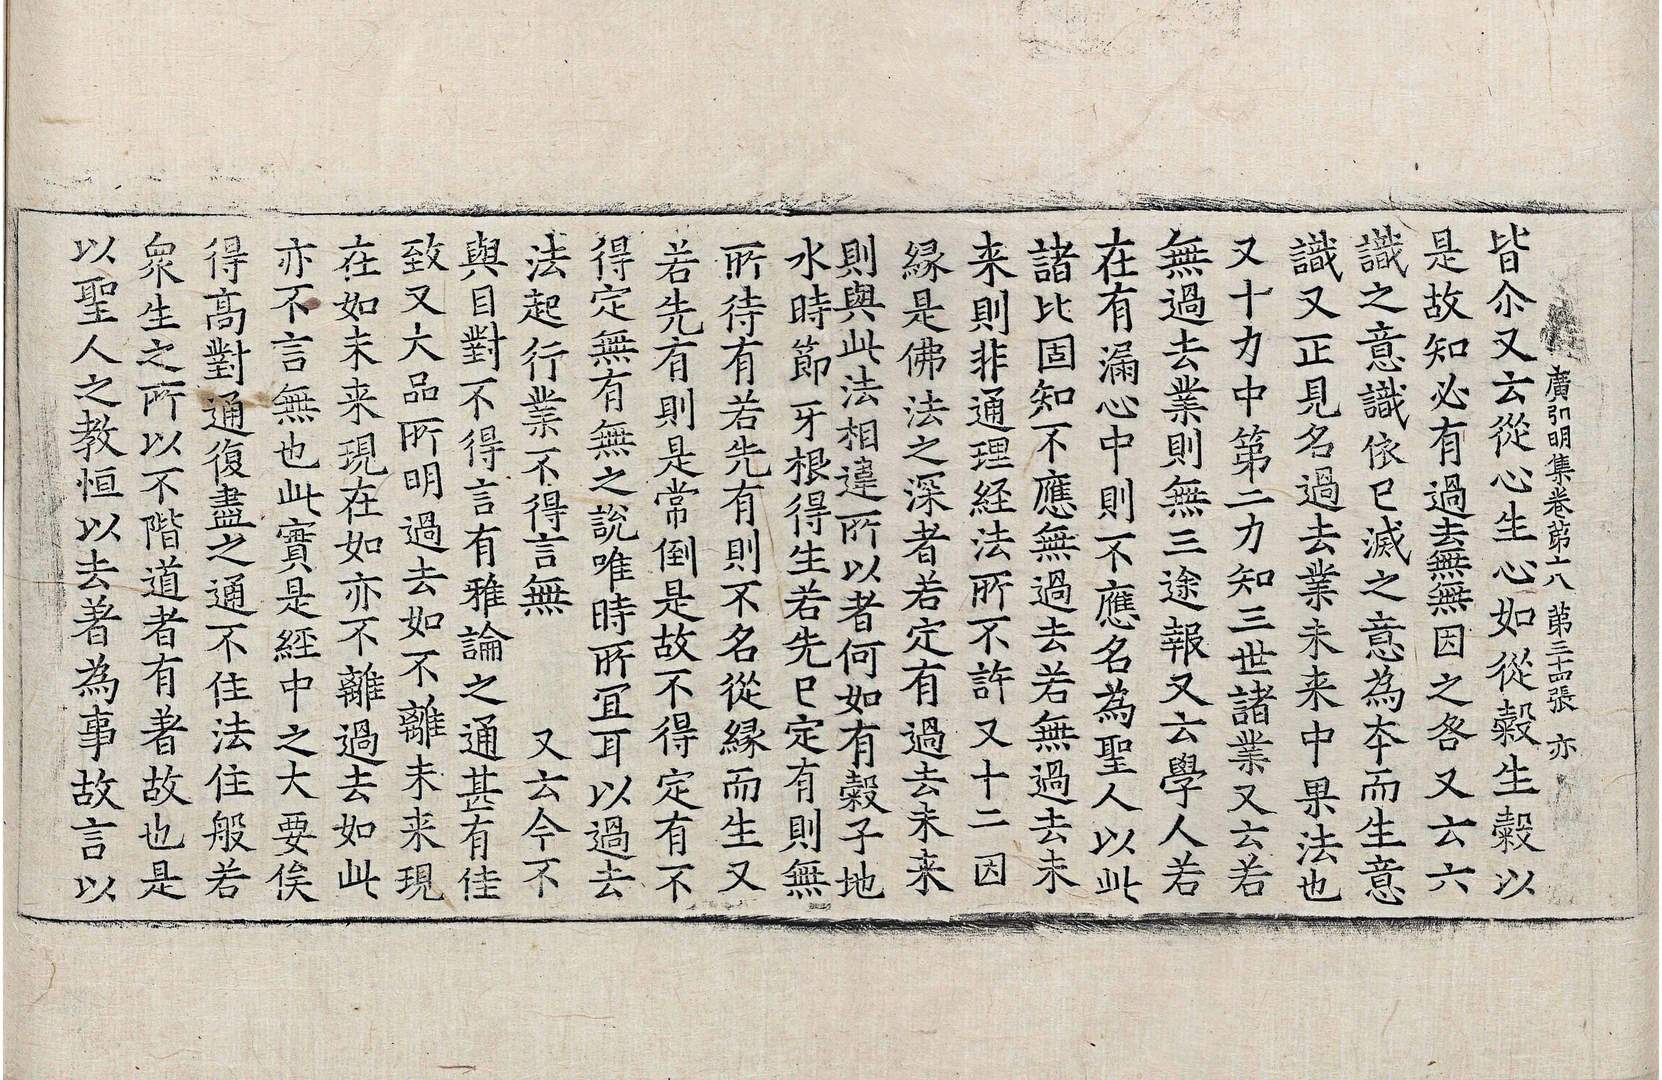 廣弘明集卷第十八 第三十四張 亦
皆尒又云從心生心如從穀生穀以
是故知必有過去無無因之咎又云六
識之意識依已滅之意為本而生意
識又正見名過去業未来中果法也
又十力中第二力知三世諸業又云若
無過去業則無三途報又云學人若
在有漏心中則不應名為聖人以此
諸比固知不應無過去若無過去未
来則非通理経法所不許又十二因
縁是佛法之深者若定有過去未来
則與此法相違所以者何如有穀子地
水時節牙根得生若先已定有則無
所待有若先有則不名從縁而生又
若先有則是常倒是故不得定有不
得定無有無之說唯時所冝耳以過去
法起行業不得言無 又云今不
與目對不得言有雅論之通甚有佳
致又大品所明過去如不離未来現
在如未来現在如亦不離過去如此
亦不言無也此實是經中之大要俟
得高對通復盡之通不住法住般若
衆生之所以不階道者有著故也是
以聖人之教恒以去著為事故言以